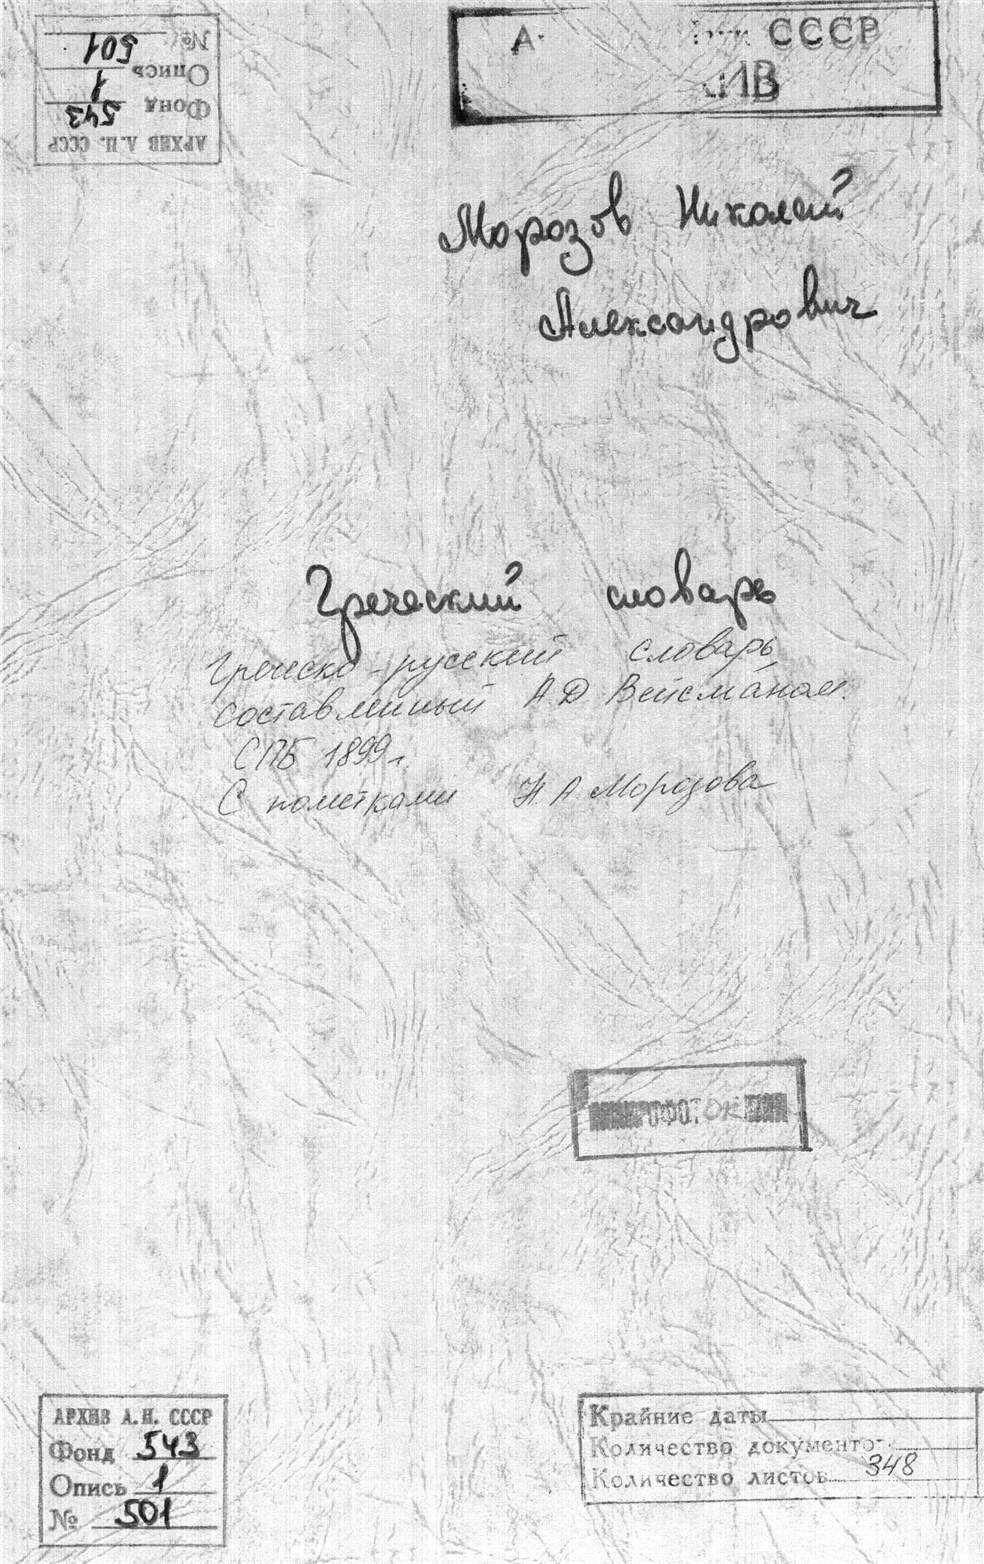 № 501
Опись 1
Фонд 543
АРХИВ А.Н. СССР
СССР
Морозов Николай
Александрович
Греческий словарь
Греческо-русский словарь
составленный А.Д. Вейсманом.
СПБ 1899 г.
С пометками Н.А. Морозова
АРХИВ А.Н. СССР
Фонд 543
Опись 1
№ 501
Крайние даты
Количество документо
Количество листов 348